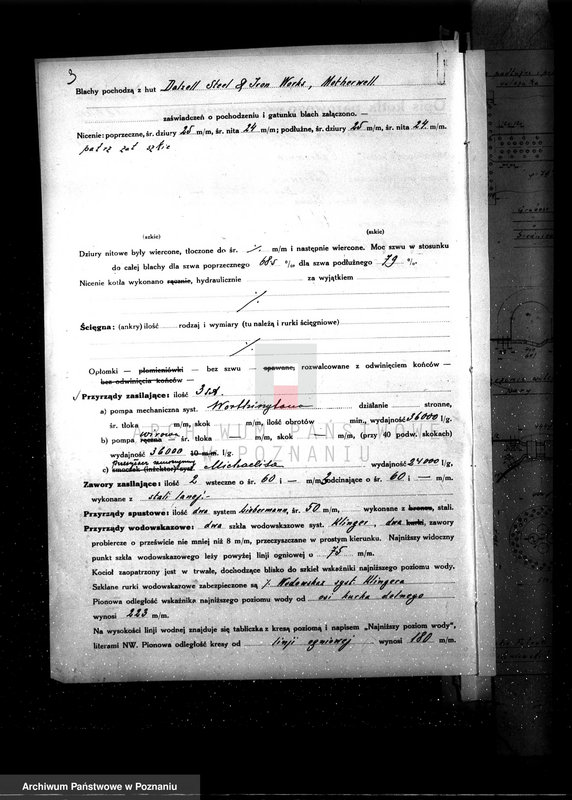 3
Blachy pochodzą z hut Dalzell Steel & Iron Works, Motherwell
zaświadczeń o pochodzeniu i gatunku blach załączono. —
Nicenie: poprzeczne, śr. dziury 25 m/m, śr. nita 24 m/m; podłużne, śr. dziury 25 m/m, śr. nita 24 m/m.
patrz zał szkic
(szkic) (szkic)
Dziury nitowe były wiercone, tłoczone do śr. ·/. m/m i następnie wiercone. Moc szwu w stosunku
do całej blachy dla szwa poprzecznego 685 %, dla szwa podłużnego 79 %.
Nicenie kotła wykonano ręcznie, hydraulicznie za wyjątkiem
·/.
Ścięgna: (ankry) ilość rodzaj i wymiary (tu należą i rurki ścięgniowe)
·/.
Opłomki — płomieniówki — bez szwu — spawane, rozwalcowane z odwinięciem końców —
bez odwinięcia końców —
Przyrządy zasilające: ilość 3 szt.
a) pompa mechaniczna syst. Worthingtona działanie stronne,
śr. tłoka m/m, skok m/m, ilość obrotów min., wydajność 36000 l/g.
b) pompa ręczna wirowa — śr. tłoka — m/m, skok — m/m, (przy 40 podw. skokach)
wydajność 36000 10 m/m. l/g.
c) smoczek (inżektor) syst. Michaelisa wydajność 24000 l/g.
Zawory zasilające: ilość 2 wsteczne o śr. 60 i — m/m, 3 odcinające o śr. 60 i — m/m,
wykonane z stali lanej.-
Przyrządy spustowe: ilość dwa system biebermann, śr. 50 m/m, wykonane z bronzu, stali.
Przyrządy wodowskazowe: dwa szkła wodowskazowe syst. Klinger, dwa kurki, zawory
probiercze o prześwicie nie mniej niż 8 m/m, przeczyszczane w prostym kierunku. Najniższy widoczny
punkt szkła wodowskazowego leży powyżej linji ogniowej o 75 m/m.
Kocioł zaopatrzony jest w trwałe, dochodzące blisko do szkieł wskaźniki najniższego poziomu wody.
Szklane rurki wodowskazowe zabezpieczone są j. Wodowskaz syst. Klingera
Pionowa odległość wskaźnika najniższego poziomu wody od osi kurka dolnego
wynosi 223 m/m.
Na wysokości linji wodnej znajduje się tabliczka z kresą poziomą i napisem „Najniższy poziom wody",
literami NW. Pionowa odległość kresy od linji ogniowej wynosi 180 m/m.
ARCHIWUM PAŃSTWOWE
W POZNANIU
Archiwum Państwowe w Poznaniu